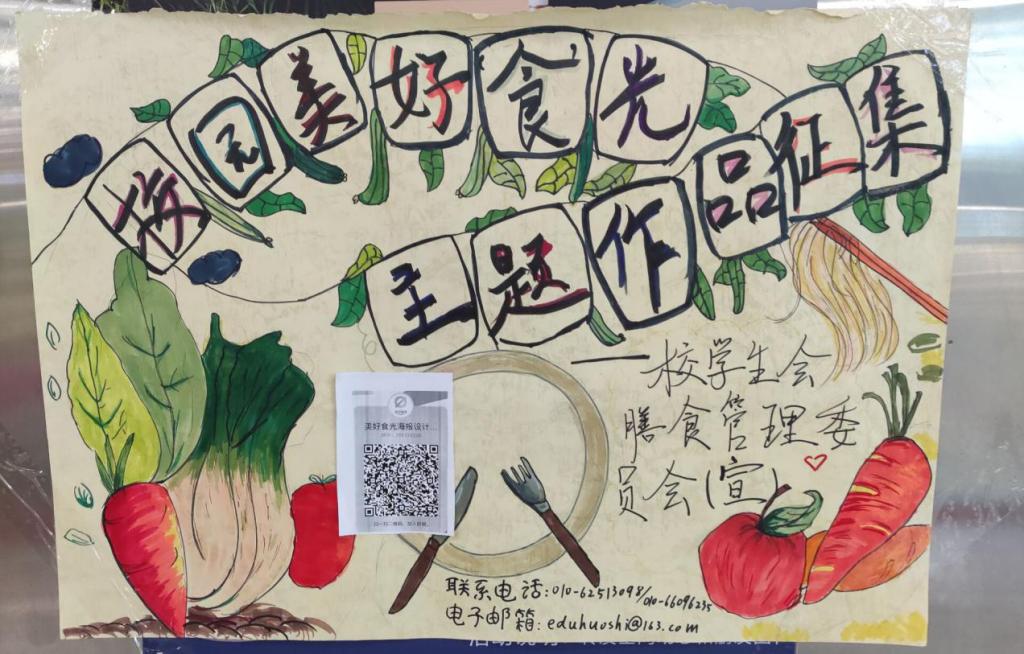 梅园美好食光
主题作品征集
——校学生会
膳食管理委
员会(宣)
美好食光海报设计...
扫一扫二维码，加入群聊。
联系电话:010-62513098/010-66096235
电子邮箱:eduhuoshi@163.com